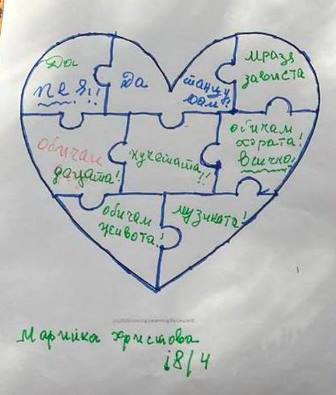 Да
пея!!
Да
стани у
дом!!
мразя
завистa
обичам
децата!
кучетата!!
обичам
хората!
Всичко!
обичам
живота!
музиката!
Марийка Христова
18/4